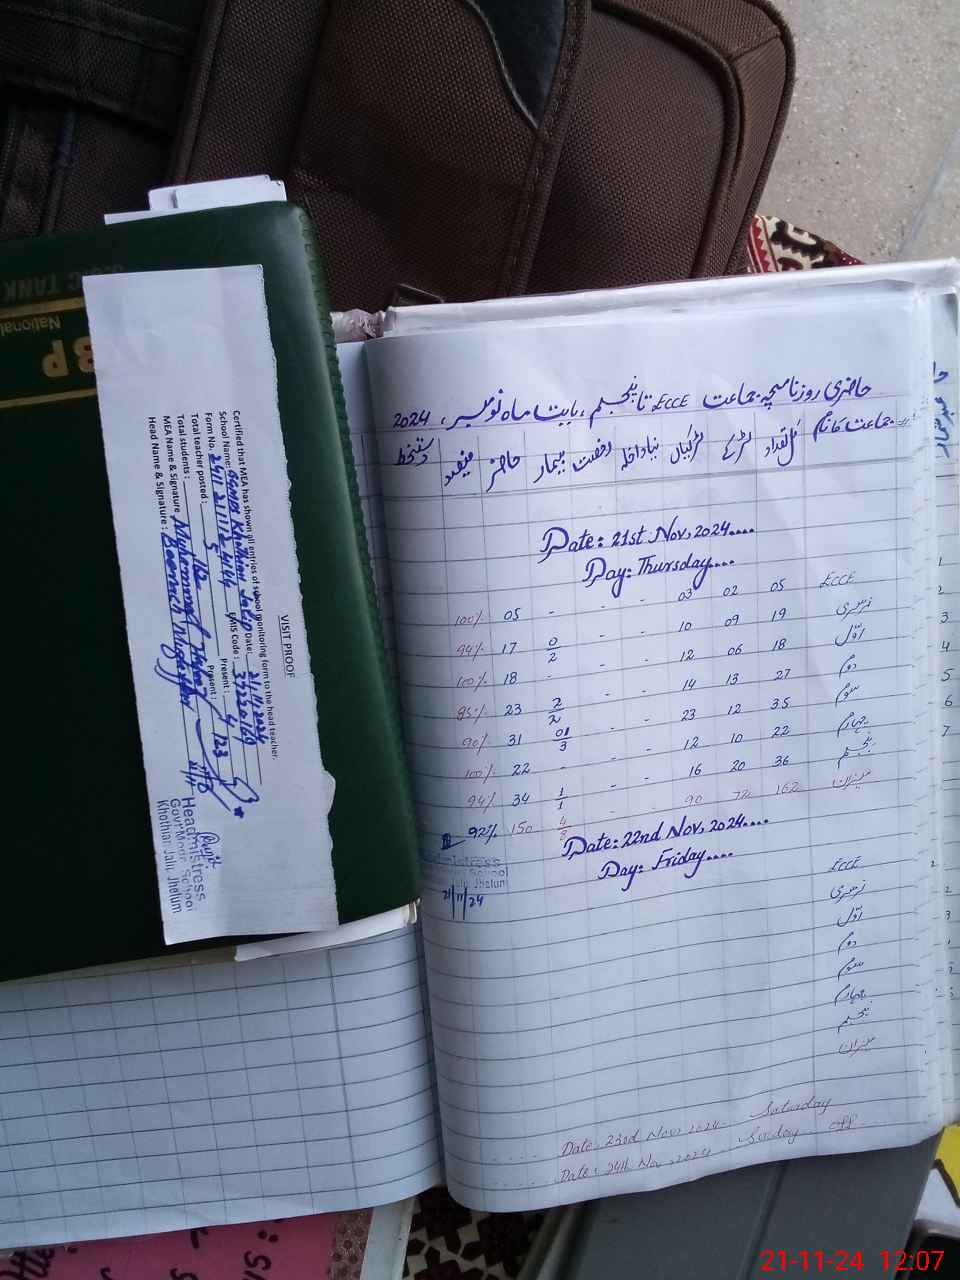 حاضری روزنامچہ جماعت ECCE تا پنجم، بابت ماہ نومبر، 2024
جماعت کا نام کل تعداد لڑکے لڑکیاں نیا داخلہ رخصت بیمار حاضر فیصد دستخط
Date: 21st Nov, 2024....
Day: Thursday....
ECCE 05 02 03 - - - 05 100%
نرسری 19 09 10 - - 0/2 17 94%
اوّل 18 06 12 - - - 18 100%
دوم 27 13 14 - - 2/2 23 85%
سوم 35 12 23 - - 01/3 31 90%
چہارم 22 10 12 - - - 22 100%
پنجم 36 20 16 - - 1/1 34 94%
میزان 162 72 90 150 92%
Date: 22nd Nov, 2024....
Day: Friday....
ECCE
نرسری
اوّل
دوم
سوم
چہارم
پنجم
میزان
Date: 23rd Nov, 2024 Saturday
Date: 24th Nov, 2024 Sunday off
School
Jhelum
21/11/24
VISIT PROOF
Certified that MEA has shown all entries of school monitoring form to the head teacher.
School Name: GGMPS Khothian Jalip Date: 21.11.2024
Form No. EMIS Code: 37220169
Total teacher posted: 5 Present: 4
Total students: 162 Present: 123
MEA Name & Signature: Muhammad
Head Name & Signature: Beenich
Headmistress
Govt Model School
Khothian Jalip Jhelum
National
BP
21-11-24 12:07